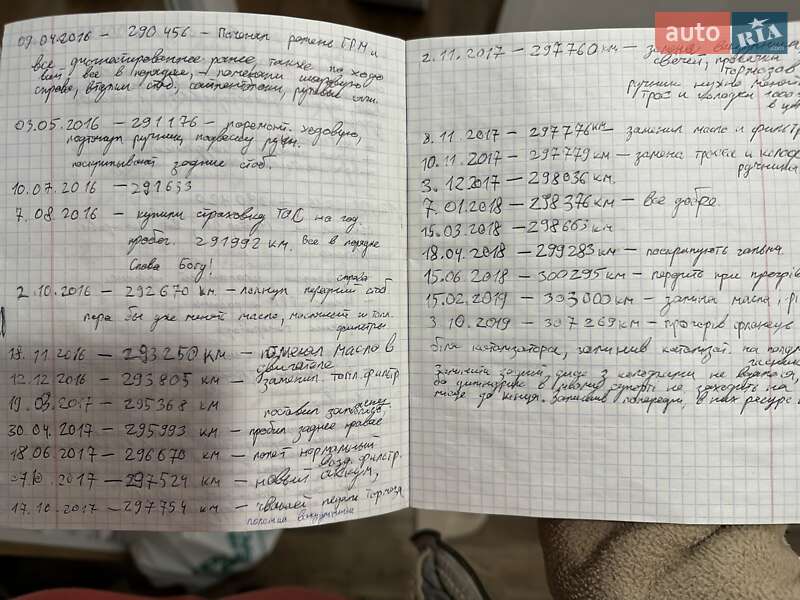 auto RIA
09.04.2016 – 290.456 – Поменял ремень ГРМ и
все диагностированное ранее, также по ходо
вой, все в порядке, – поменяли шаровую
справа, втулки стоб,
03.05.2016 – 291176 – ходовую,
подтянул ручник,
поскрипывает задние стоб.
10.07.2016 – 291633
7.08.2016 – купили страховку на год.
пробег 291992 км. все в порядке
Слава Богу!
справа
2.10.2016 – 292670 км – лопнул передний стоб.
пора бы уже менять масло, и топл.
фильтры
18.11.2016 – 293250 км – поменял масло в
двигателе
12.12.2016 – 293805 км – заменил топл.фильтр
19.03.2017 – 295368 км поставил
30.04.2017 – 295993 км – пробил заднее правое
18.06.2017 – 296670 км – полет нормальный
возд. фильтр.
.2017 – 297524 км – новый аккум,
17.10.2017 – 297754 км – педали тормоза
2.11.2017 – 297760 км – замена
свечей, прокачка
тормозов
ручник нужно
трос и колодки
в
8.11.2017 – 297776 км – заменил масло и фильтр
10.11.2017 – 297779 км – замена троса и колод
ручника
3.12.2017 – 298036 км.
7.01.2018 – 298376 км – все добре.
15.03.2018 – 298663 км
18.04.2018 – 299283 км – поскрипують гальма.
15.06.2018 – 300295 км – пердить при прогрів
15.02.2019 – 303000 км – заміна масла,
3.10.2019 – 307269 км – прогорів фланець
біля каталізатора, залишив каталізат. на
Замінити задній диск з колодками не вдалося,
бо циліндрик в не заходить на
місце до кінця. Залишив попередні, в них ресурс